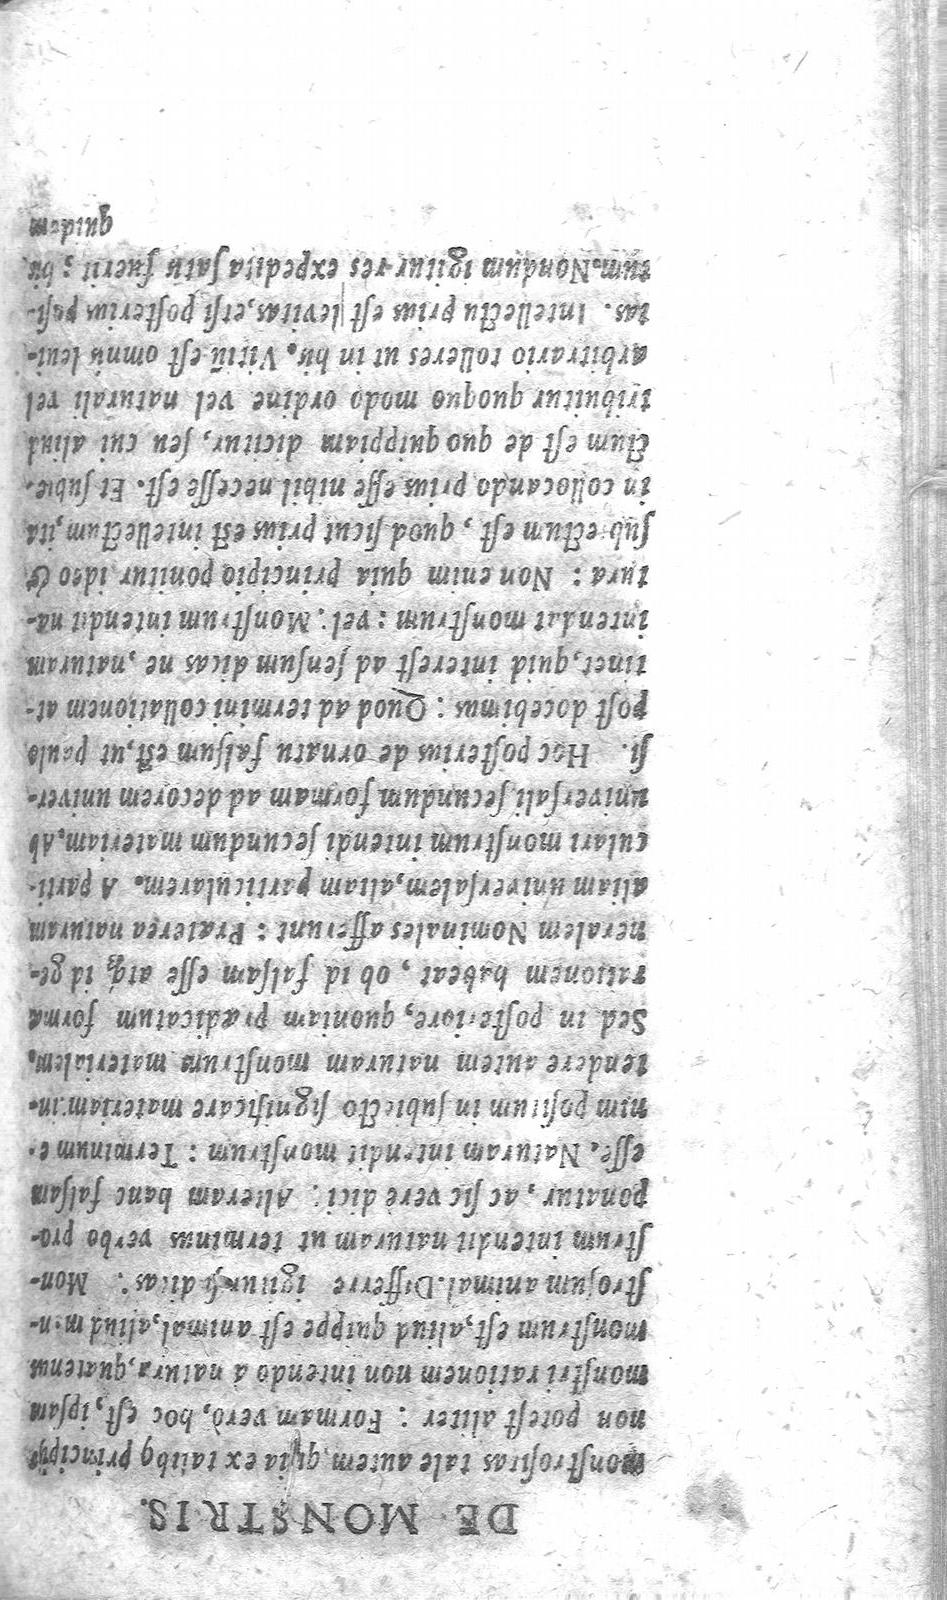 DE MONSTRIS.
monstrositas tale autem quia ex talibꝰ principijs
non potest aliter : Formam verò, hoc est, ipsam
monstri rationem non intendo à natura, quatenus
monstrum est, aliud quippe est animal, aliud mon-
strosum animal. Differre igitur si dicas : Mon-
strum intendit naturam ut terminus verbo pro-
ponatur, ac sic verè dici : Alteram hanc falsam
esse, Naturam intendit monstrum : Terminum e-
nim positum in subiecto significare materiam: in-
tendere autem naturam monstrum materialem,
Sed in posteriore, quoniam prædicatum formæ
rationem habeat, ob id falsam esse atq; id ge-
neralem Nominales afferunt : Præterea naturam
aliam universalem, aliam particularem. A parti-
culari monstrum intendi secundum materiam, Ab
universali secundum formam ad decorem univer-
si. Hoc posterius de ornatu falsum est, ut paulo
post docebimus : Quod ad termini collationem at-
tinet, quid interest ad sensum dicas ne, naturam
intendat monstrum : vel : Monstrum intendit na-
tura : Non enim quia principio ponitur ideo &
subiectum est, quod sicut prius est intellectum, ita
in collocando prius esse nihil necesse est. Et subie-
ctum est de quo quippiam dicitur, seu cui aliud
tribuitur quoquo modo ordine vel naturali vel
arbitrario tolleres ut in his. Vitiū est omnis levi-
tas. Intellectu prius est levitas, etsi posterius posi-
tum. Nondum igitur res expedita satis fuerit ; his
quidem